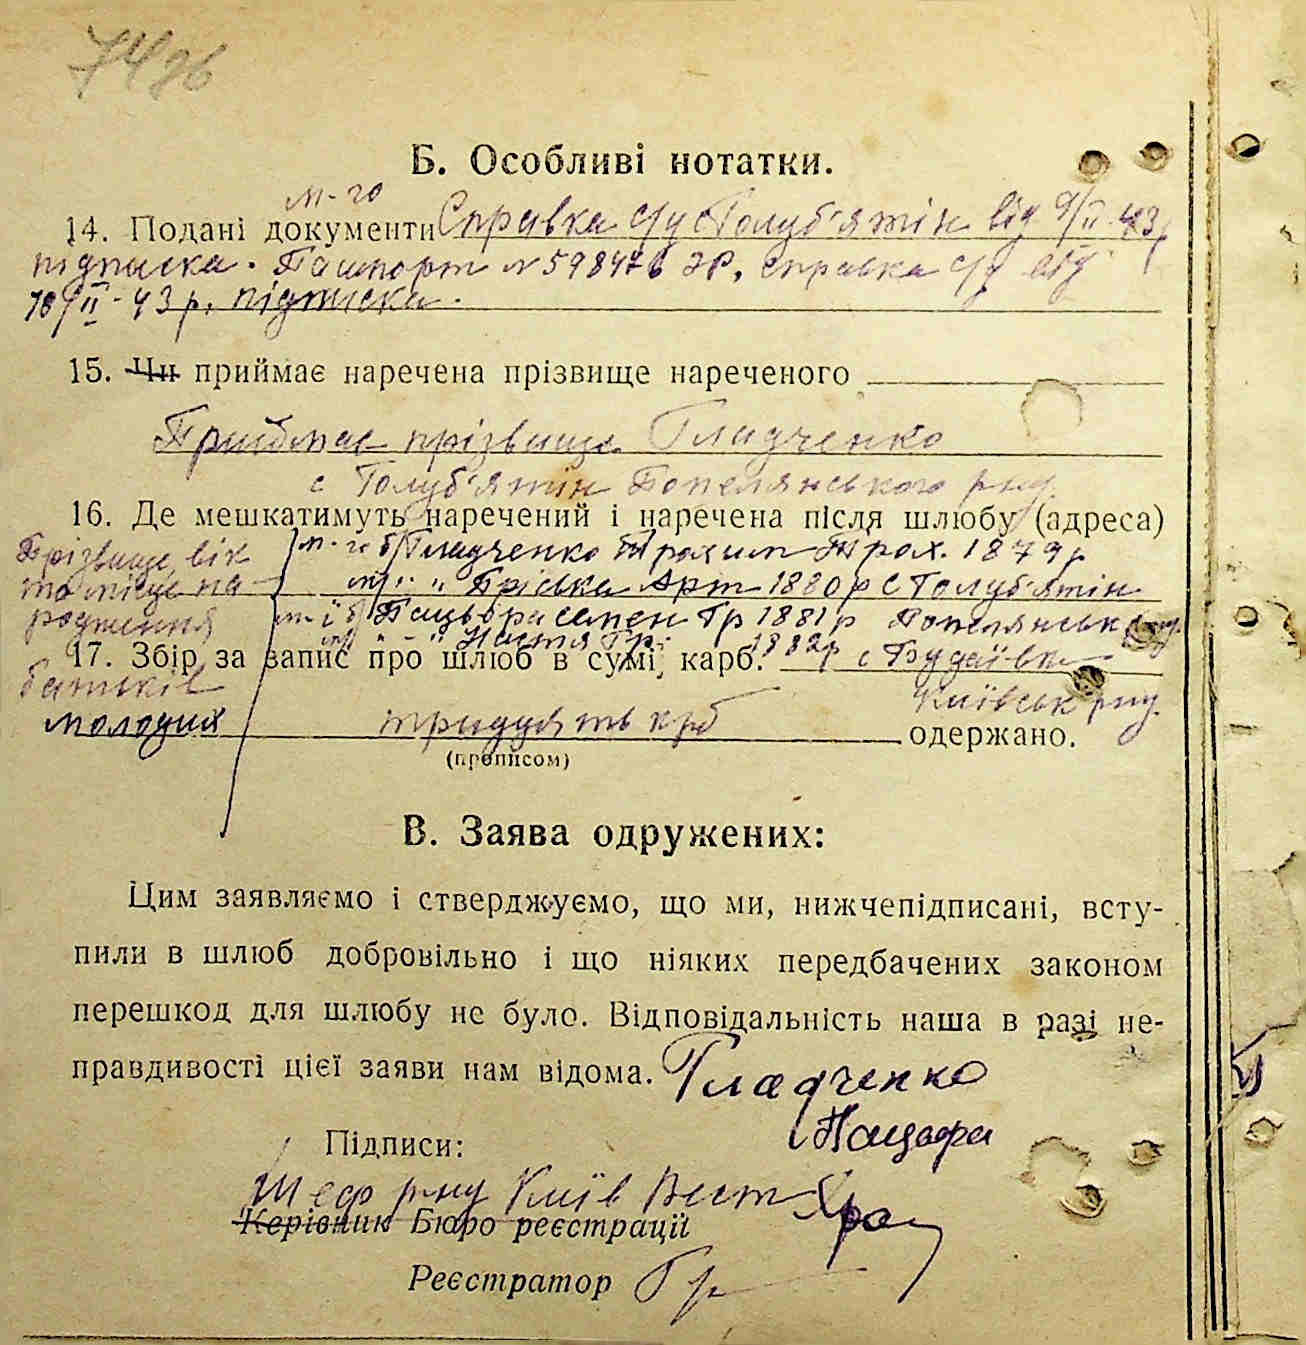 7496
Б. Особливі нотатки.
м-го
14. Подані документи Справка с/у с Голуб'ятін від 9/II-43р
підписка. Пашпорт № 598476 ЭР, справка с/у від
10/II-43р, підписка.
15. Чи приймає наречена прізвище нареченого
Приймає прізвище Гладченко
с Голуб'ятін Попелянського р-ну
16. Де мешкатимуть наречений і наречена після шлюбу (адреса)
Прізвище, вік
та місце на
родження
батьків
молодих
м-го б) Гладченко Трохим Трох. 1879р
" Пріська Арт 1880р с Голуб'ятін
м-ї б) Пацьора Семен Гр 1881р Попелянськ р-ну.
" - " Настя Гр. 1882р с Будаївка
17. Збір за запис про шлюб в сумі карб.
Київськ р-ну.
тридцять крб одержано.
(прописом)
В. Заява одружених:
Цим заявляємо і стверджуємо, що ми, нижчепідписані, всту-
пили в шлюб добровільно і що ніяких передбачених законом
перешкод для шлюбу не було. Відповідальність наша в разі не-
правдивості цієї заяви нам відома. Гладченко
Підписи:
Шеф р-ну Київ Вест
Керівник Бюро реєстрації
Реєстратор